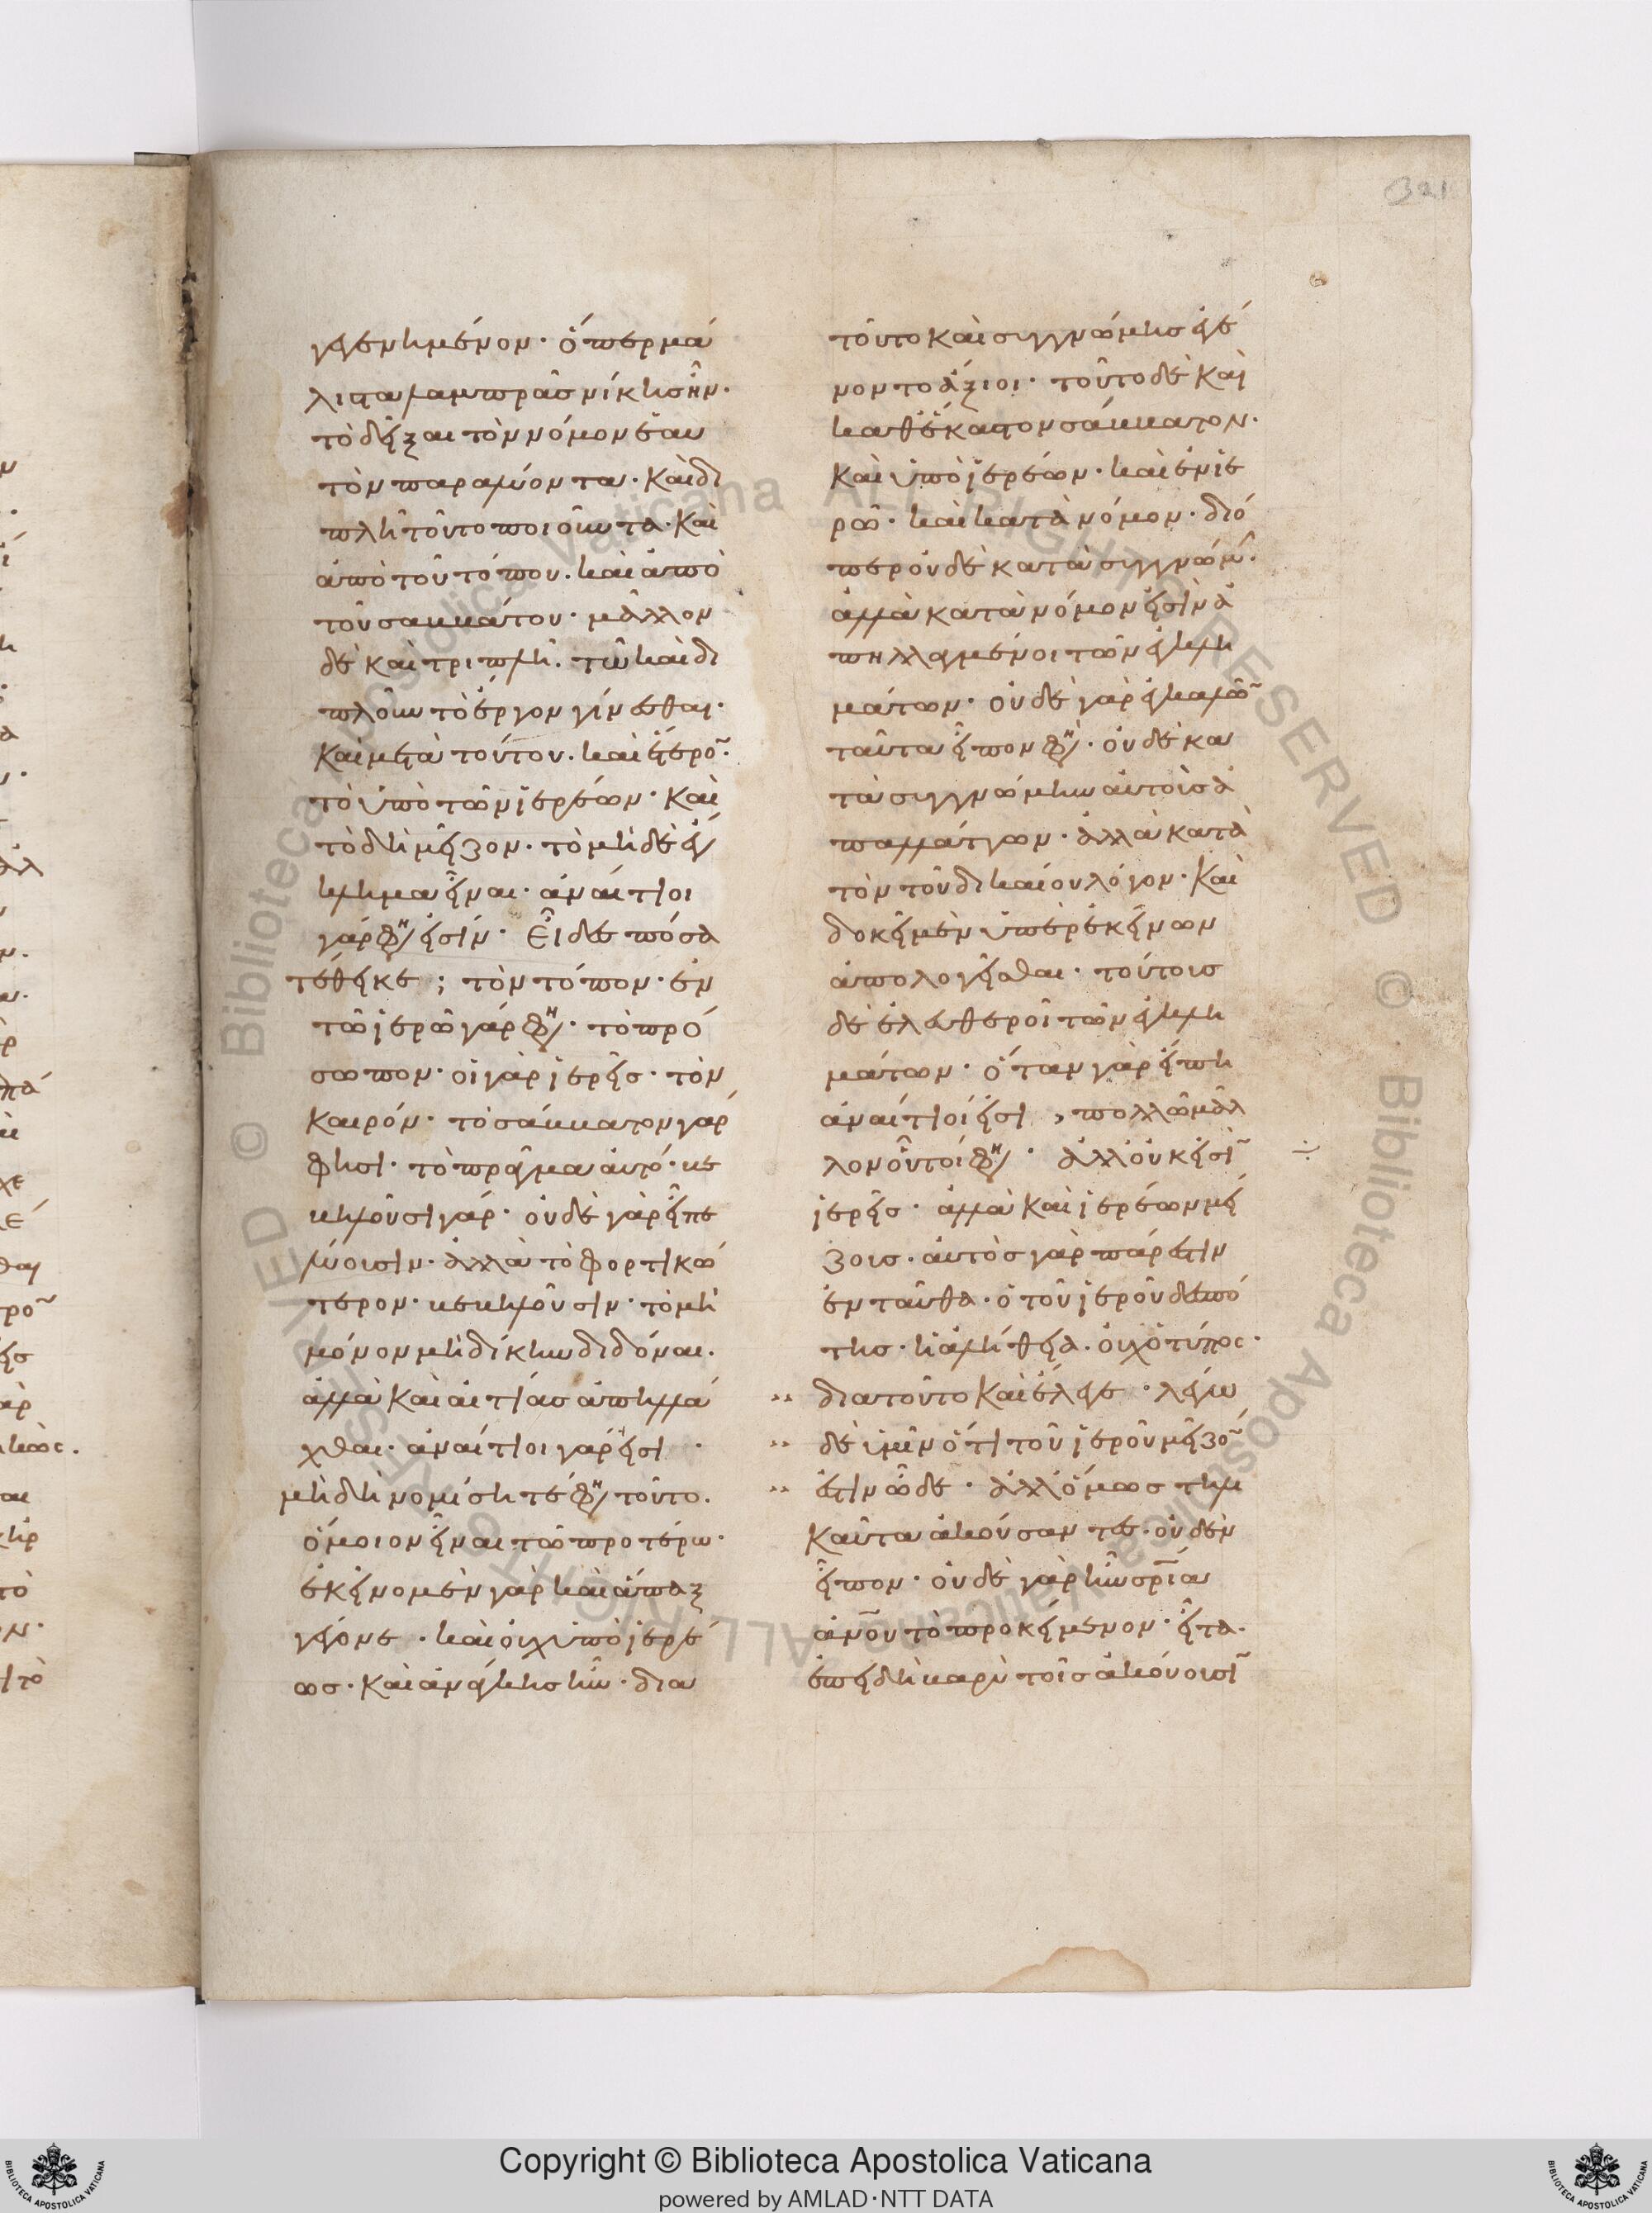 321
γεγενημένον· ὅπερ μά
λιστα λαμπρᾶς νίκης ἦν·
τὸ δεῖξαι τὸν νόμον ἑαυ
τὸν παραλύοντα· καὶ δι
πλῆ τοῦτο ποιοῦντα· καὶ
ἀπὸ τοῦ τόπου· καὶ ἀπὸ
τοῦ σαββάτου· μᾶλλον
δὲ καὶ τριπλῆ· τῶ καὶ δι
πλοῦν τὸ ἔργον γίνεσθαι·
καὶ μετὰ τούτου· καὶ ἕτερο̃·
τὸ ὑπὸ τῶν ἱερέων· καὶ
τὸ δὴ μεῖζον· τὸ μηδὲ ἔγ
κλημα εἶναι· ἀναίτιοι
γάρ φη εἰσίν· Εἶδες πόσα
τέθεικε; τὸν τόπον· ἐν
τῶ ἱερῶ γάρ φη· τὸ πρό
σωπον· οἱ γὰρ ἱερεῖς· τὸν
καιρόν· τὸ σάββατον γάρ
φησι· τὸ πρᾶγμα αὐτό· βε
βηλοῦσι γάρ· οὐδὲ γὰρ εἶπε
λύουσιν· ἀλλὰ τὸ φορτικώ
τερον· βεβηλοῦσιν· τὸ μὴ
μόνον μὴ δίκην διδόναι·
ἀλλὰ καὶ αἰτίας ἀπηλλά
χθαι· ἀναίτιοι γάρ εἰσι·
μὴ δὴ νομίσητέ φη τοῦτο·
ὅμοιον εἶναι τῶ προτέρω·
ἐκεῖνο μὲν γὰρ καὶ ἅπαξ
γέγονε· καὶ οὐχ ὑπὸ ἱερέ
ως· καὶ ἀνάγκης ἦν· δια
τοῦτο καὶ συγγνώμης ἐγέ
νοντο ἄξιοι· τοῦτο δὲ καὶ
καθ' ἕκαστον σάββατον·
καὶ ὑπὸ ἱερέων· καὶ ἐν ἱε
ρῶ· καὶ κατὰ νόμον· διό
περ οὐδὲ κατὰ συγγνώμ·
ἀλλὰ κατὰ νόμον εἰσὶν ἀ
πηλλαγμένοι τῶν ἐγκλη
μάτων· οὐδὲ γὰρ ἐγκαλῶ̃
ταῦτα εἶπον φη· οὐδὲ κα
τὰ συγγνώμην αὐτοὺς ἀ
παλλάττων· ἀλλὰ κατὰ
τὸν τοῦ δικαίου λόγον· καὶ
δοκεῖ μὲν ὑπὲρ ἐκείνων
ἀπολογεῖσθαι· τούτους
δὲ ἐλευθεροῖ τῶν ἐγκλη
μάτων· ὅταν γὰρ εἴπη
ἀναίτιοί εἰσι, πολλῶ μᾶλ
λον οὗτοί φη· ἀλλ' οὐκ εἰσὶ̃
ἱερεῖς· ἀλλὰ καὶ ἱερέων μεί
ζους· αὐτὸς γὰρ πάρεστιν
ἐνταῦθα· ὁ τοῦ ἱεροῦ δεσπό
της· ἡ ἀλήθεια· οὐχ ὁ τύπος·
διατοῦτο καὶ ἔλεγε· λέγω
δὲ ὑμῖν ὅτι τοῦ ἱεροῦ μεῖζο̃
ἐστὶν ὧδε· ἀλλ' ὅμως τηλι
καῦτα ἀκούσαντες· οὐδὲν
εἶπον· οὐδὲ γὰρ ἦν σρ̅ία
ἀν̅ου τὸ προκείμενον· εἶτα·
ἐπειδὴ βαρὺ τοῖς ἀκούουσι̃
Copyright © Biblioteca Apostolica Vaticana
powered by AMLAD·NTT DATA